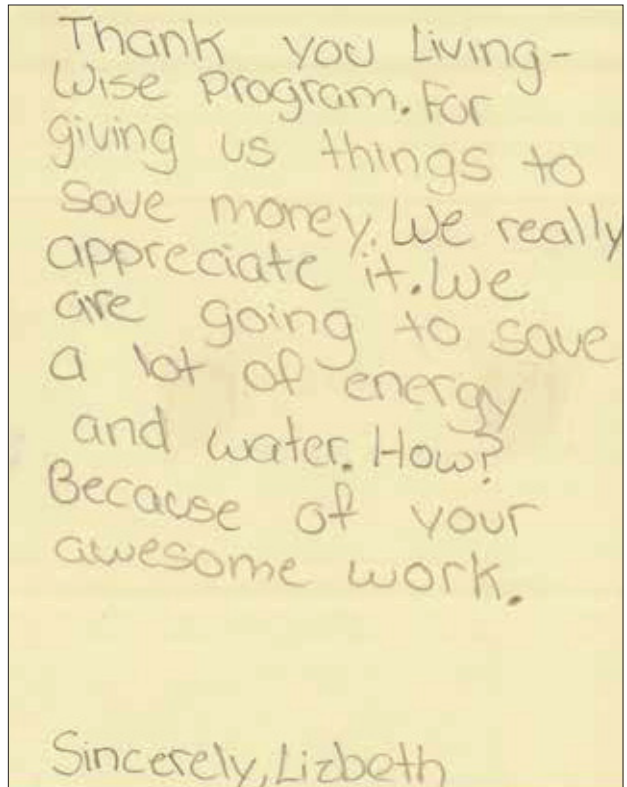 Thank you Living-
Wise Program. For
giving us things to
save money. We really
appreciate it. We
are going to save
a lot of energy
and water. How?
Because of your
awesome work.
Sincerely, Lizbeth